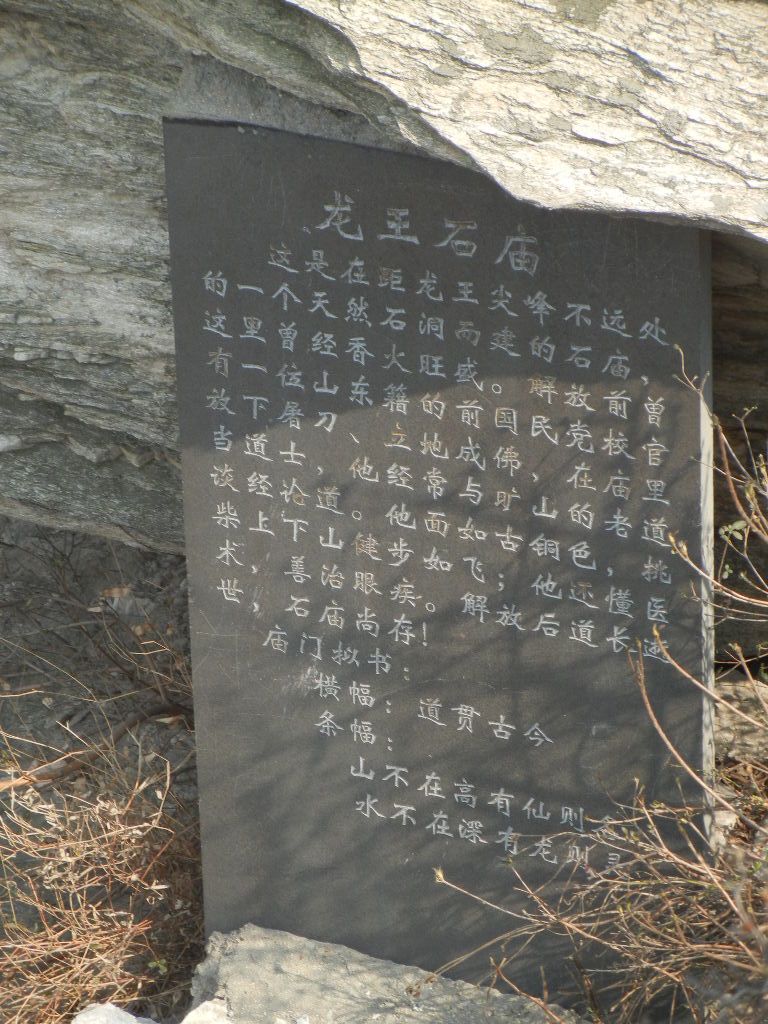 龙王石庙
这是在距龙王尖峰不远处,
的一个天然石洞而建的石庙,
这里曾经香火旺盛。解放前曾
有一位山东籍的前国民党校官
放下屠刀、立地成佛,在庙里
当道士,他经常与旷山的老道
谈经论道。他面如古铜色,挑
柴上下山健步如飞;他还懂医
术,善治眼疾。解放后道长逝
世,石庙尚存!
庙门拟书:
横幅:道贯古今
条幅:
山不在高有仙则名
水不在深有龙则灵